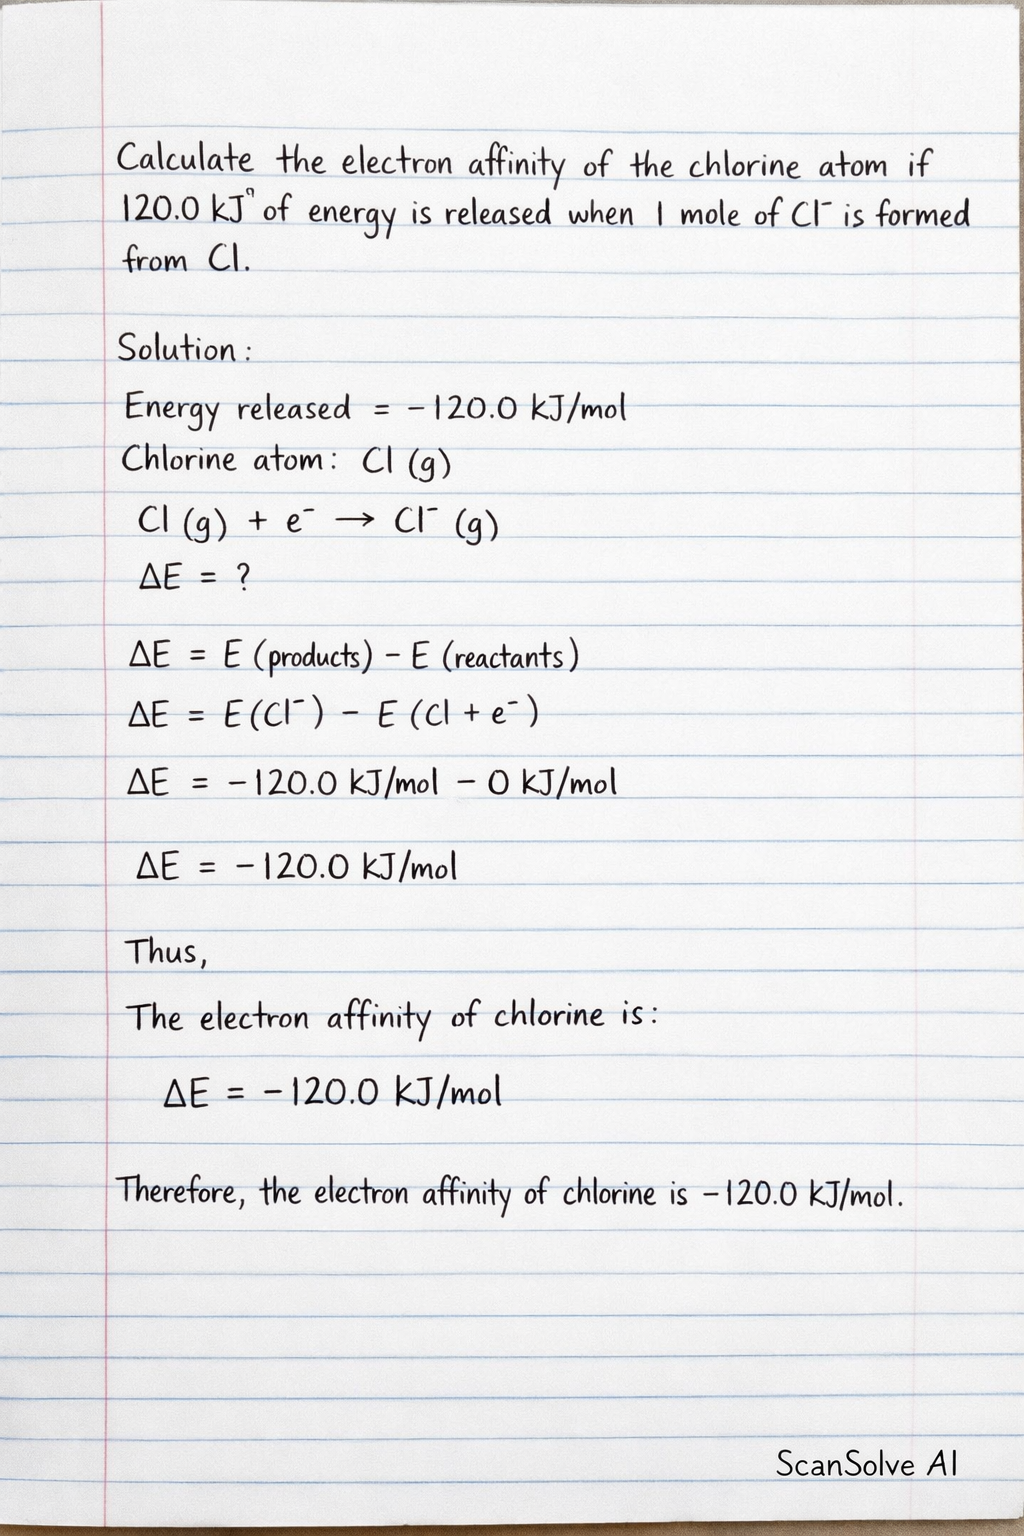 Calculate the electron affinity of the chlorine atom if
120.0 kJ of energy is released when 1 mole of Cl⁻ is formed
from Cl.
Solution:
Energy released = −120.0 kJ/mol
Chlorine atom: Cl (g)
Cl (g) + e⁻ → Cl⁻ (g)
ΔE = ?
ΔE = E (products) − E (reactants)
ΔE = E (Cl⁻) − E (Cl + e⁻)
ΔE = −120.0 kJ/mol − 0 kJ/mol
ΔE = −120.0 kJ/mol
Thus,
The electron affinity of chlorine is:
ΔE = −120.0 kJ/mol
Therefore, the electron affinity of chlorine is −120.0 kJ/mol.
ScanSolve AI